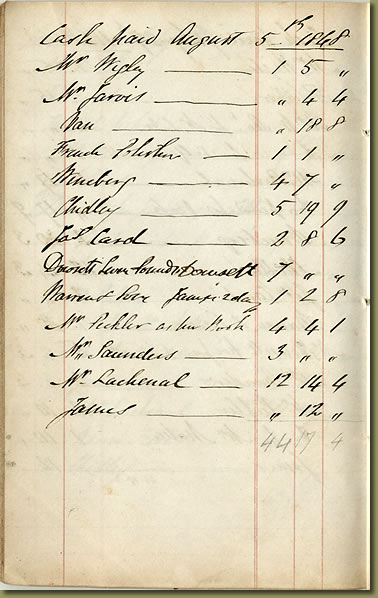 Cash paid August 5th 1848
Mr Wigby 1 5 "
Mr Jarvis " 4 4
Nan " 18 8
French Polisher 1 1 "
Wineberg 4 7 "
Chidley 5 19 9
Jas Card 2 8 6
Dorsett 7 " "
1 2 8
Mr as per Book 4 4 1
Mr Saunders 3 " "
Mr Lachenal 12 14 4
James " 12 "
44 17 4